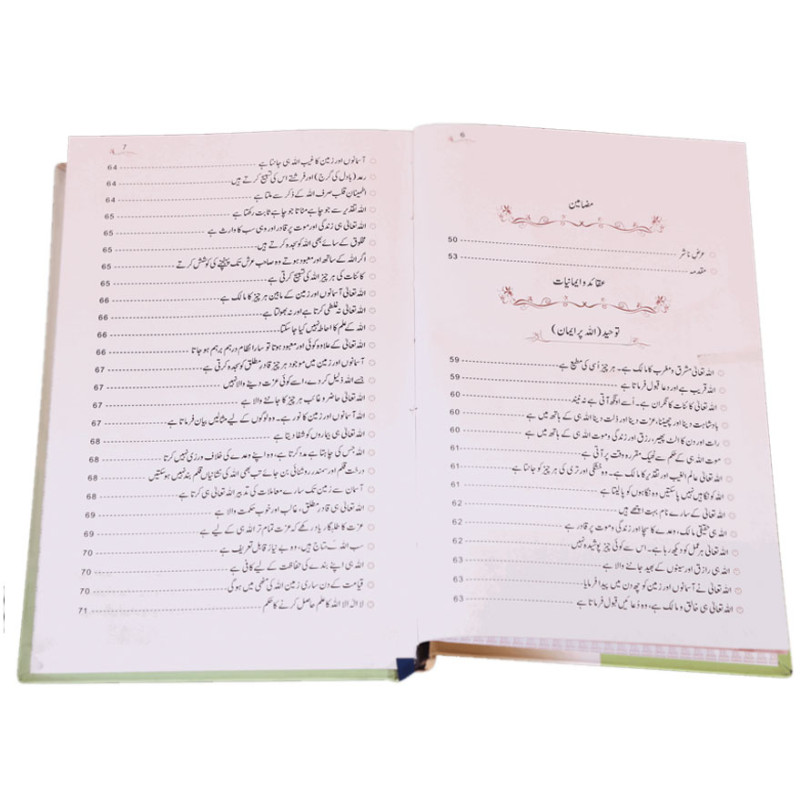 6
مضامین
عرض ناشر 50
مقدمہ 53
عقائد و ایمانیات
توحید (اللہ پر ایمان)
اللہ تعالیٰ مشرق و مغرب کا مالک ہے۔ ہر چیز اُسی کی مطیع ہے 59
اللہ قریب ہے اور دعا قبول فرماتا ہے 59
اللہ تعالیٰ کائنات کا نگران ہے۔ اُسے اونگھ آتی ہے نہ نیند 60
بادشاہت دینا اور چھیننا، عزت دینا اور ذلت دینا اللہ ہی کے ہاتھ میں ہے 60
رات اور دن کا الٹ پھیر، رزق اور زندگی و موت اللہ ہی کے ہاتھ میں ہے 60
موت اللہ ہی کے حکم سے ٹھیک مقررہ وقت پر آتی ہے 61
اللہ تعالیٰ عالم الغیب اور تقدیر کا مالک ہے۔ وہ خشکی اور تری کی ہر چیز کو جانتا ہے 61
اللہ کو نگاہیں نہیں پاسکتیں وہ نگاہوں کو پالیتا ہے 61
اللہ تعالیٰ کے سارے نام بہت اچھے ہیں 62
اللہ ہی حقیقی مالک، وعدے کا سچا اور زندگی و موت پر قادر ہے 62
اللہ تعالیٰ ہر عمل کو دیکھ رہا ہے۔ اس سے کوئی چیز پوشیدہ نہیں 62
اللہ ہی رازق اور سینوں کے بھید جاننے والا ہے 63
اللہ تعالیٰ نے آسمانوں اور زمین کو چھ دن میں پیدا فرمایا 63
اللہ تعالیٰ ہی خالق و مالک ہے، وہ دعائیں قبول فرماتا ہے 63
7
آسمانوں اور زمین کا غیب اللہ ہی جانتا ہے 64
رعد (بادل کی گرج) اور فرشتے اس کی تسبیح کرتے ہیں 64
اطمینان قلب صرف اللہ کے ذکر سے ملتا ہے 64
اللہ تقدیر سے جو چاہے مٹاتا جو چاہے ثابت رکھتا ہے 65
اللہ تعالیٰ ہی زندگی اور موت پر قادر اور وہی سب کا وارث ہے 65
مخلوق کے سائے بھی اللہ کو سجدہ کرتے ہیں 65
اگر اللہ کے ساتھ اور معبود ہوتے تو وہ صاحب عرش تک پہنچنے کی کوشش کرتے 65
کائنات کی ہر چیز اللہ کی تسبیح کرتی ہے 65
اللہ تعالیٰ آسمانوں اور زمین کے مابین ہر چیز کا مالک ہے 66
اللہ تعالیٰ نہ غلطی کرتا ہے اور نہ بھولتا ہے 66
اللہ کے علم کا احاطہ نہیں کیا جاسکتا 66
اللہ تعالیٰ کے علاوہ کوئی اور معبود ہوتا تو سارا نظام درہم برہم ہو جاتا 66
آسمانوں اور زمین میں موجود ہر چیز قادر مطلق کو سجدہ کرتی ہے 67
جسے اللہ ذلیل کر دے، اسے کوئی عزت دینے والا نہیں 67
اللہ تعالیٰ حاضر و غائب ہر چیز کا جاننے والا ہے 67
اللہ آسمانوں اور زمین کا نور ہے۔ وہ لوگوں کے لیے مثالیں بیان فرماتا ہے 67
اللہ تعالیٰ ہی بیماروں کو شفا دیتا ہے 68
اللہ جس کی چاہتا ہے مدد کرتا ہے، وہ اپنے وعدے کی خلاف ورزی نہیں کرتا 68
درخت قلم اور سمندر روشنائی بن جائے تب بھی اللہ کی نشانیاں قلم بند نہیں ہوسکتیں 68
آسمان سے زمین تک سارے معاملات کی تدبیر اللہ تعالیٰ ہی کرتا ہے 68
اللہ تعالیٰ ہی قادر مطلق، غالب اور خوب حکمت والا ہے 69
عزت کا طلبگار یاد رکھے کہ عزت تمام تر اللہ ہی کے لیے ہے 69
سب اللہ کے محتاج ہیں، وہ بے نیاز قابل تعریف ہے 70
اللہ ہی اپنے بندے کی حفاظت کے لیے کافی ہے 70
قیامت کے دن ساری زمین اللہ کی مٹھی میں ہوگی 70
لا الٰہ الا اللہ کا علم حاصل کرنے کا حکم 71